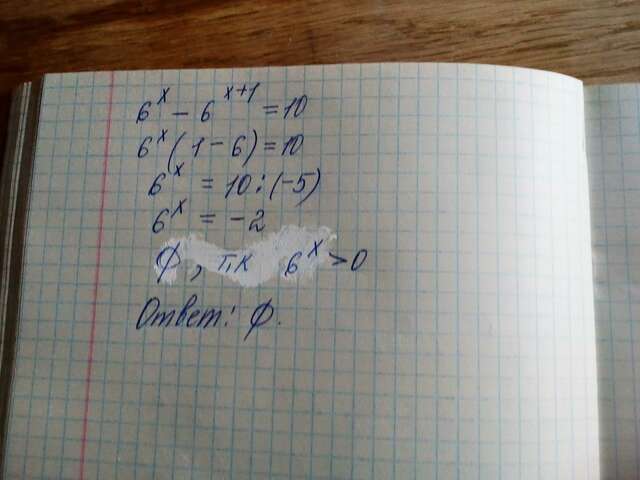 6^x - 6^{x+1} = 10
6^x (1 - 6) = 10
6^x = 10 : (-5)
6^x = -2
∅, т.к 6^x > 0
Ответ: ∅.